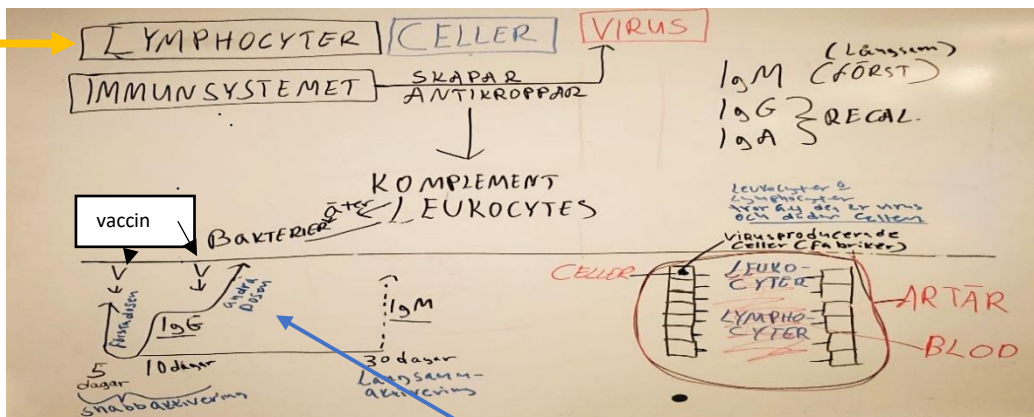 LYMPHOCYTER CELLER VIRUS
IMMUNSYSTEMET SKAPAR
ANTIKROPPAR
(Långsam)
IgM (FÖRST)
IgG
IgA
RECAL.
KOMPLEMENT
LEUKOCYTES
äter
BAKTERIER
vaccin
förstadosen
IgG
andra
Dosen
IgM
5
dagar
10 dagar
30 dagar
snabbaktivering
Långsamm-
aktivering
Leukocyter &
Lymphocyter
tror att den är virus
och dödar cellen
Virusproducerade
celler (fabriker)
CELLER
LEUKO-
CYTER
LYMPHO-
CYTER
ARTÄR
BLOD